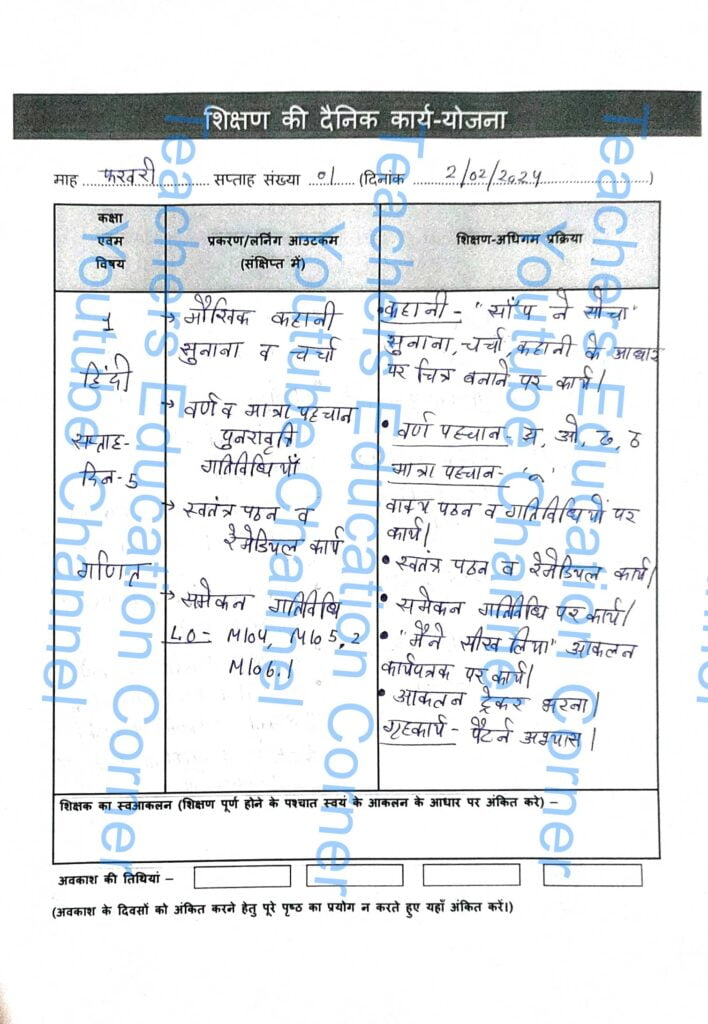 शिक्षण की दैनिक कार्य-योजना
माह फरवरी सप्ताह संख्या 01 (दिनांक 2/02/2024)
कक्षा एवम विषय
प्रकरण/लर्निंग आउटकम (संक्षिप्त में)
शिक्षण-अधिगम प्रक्रिया
1
हिंदी
सप्ताह-
दिन-5
गणित
→ मौखिक कहानी
सुनाना व चर्चा
→ वर्ण व मात्रा पहचान
पुनरावृत्ति
गतिविधियाँ
→ स्वतंत्र पठन व
रेमेडियल कार्य
→ समेकन गतिविधि
LO- M104, M105.2
M106.1
•कहानी - "साँप ने सोचा"
सुनाना, चर्चा, कहानी के आधार
पर चित्र बनाने पर कार्य।
• वर्ण पहचान- ओ, ढ, ठ
मात्रा पहचान-
वाक्य पठन व गतिविधियों पर
कार्य।
• स्वतंत्र पठन व रेमेडियल कार्य।
• समेकन गतिविधि पर कार्य।
• "मैंने सीख लिया" आकलन
कार्यपत्रक पर कार्य।
• आकलन ट्रेकर भरना।
गृहकार्य - पैटर्न अभ्यास।
शिक्षक का स्वआकलन (शिक्षण पूर्ण होने के पश्चात स्वयं के आकलन के आधार पर अंकित करे) –
अवकाश की तिथियां –
(अवकाश के दिवसों को अंकित करने हेतु पूरे पृष्ठ का प्रयोग न करते हुए यहाँ अंकित करें।)
Teachers Education Corner
Youtube Channel
Teachers Education Corner
Youtube Channel
Teachers Education Corner
Youtube Channel